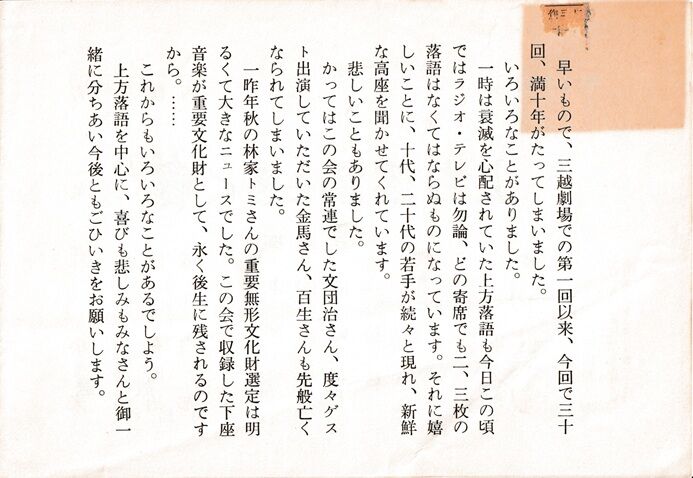 早いもので、三越劇場での第一回以来、今回で三十
回、満十年がたってしまいました。
いろいろなことがありました。
一時は衰滅を心配されていた上方落語も今日この頃
ではラジオ・テレビは勿論、どの寄席でも二、三枚の
落語はなくてはならぬものになっています。それに嬉
しいことに、十代、二十代の若手が続々と現れ、新鮮
な高座を聞かせてくれています。
悲しいこともありました。
かってはこの会の常連でした文団治さん、度々ゲス
ト出演していただいた金馬さん、百生さんも先般亡く
なられてしまいました。
一昨年秋の林家トミさんの重要無形文化財選定は明
るくて大きなニュースでした。この会で収録した下座
音楽が重要文化財として、永く後生に残されるのです
から。……
これからもいろいろなことがあるでしよう。
上方落語を中心に、喜びも悲しみもみなさんと御一
緒に分ちあい今後ともごひいきをお願いします。